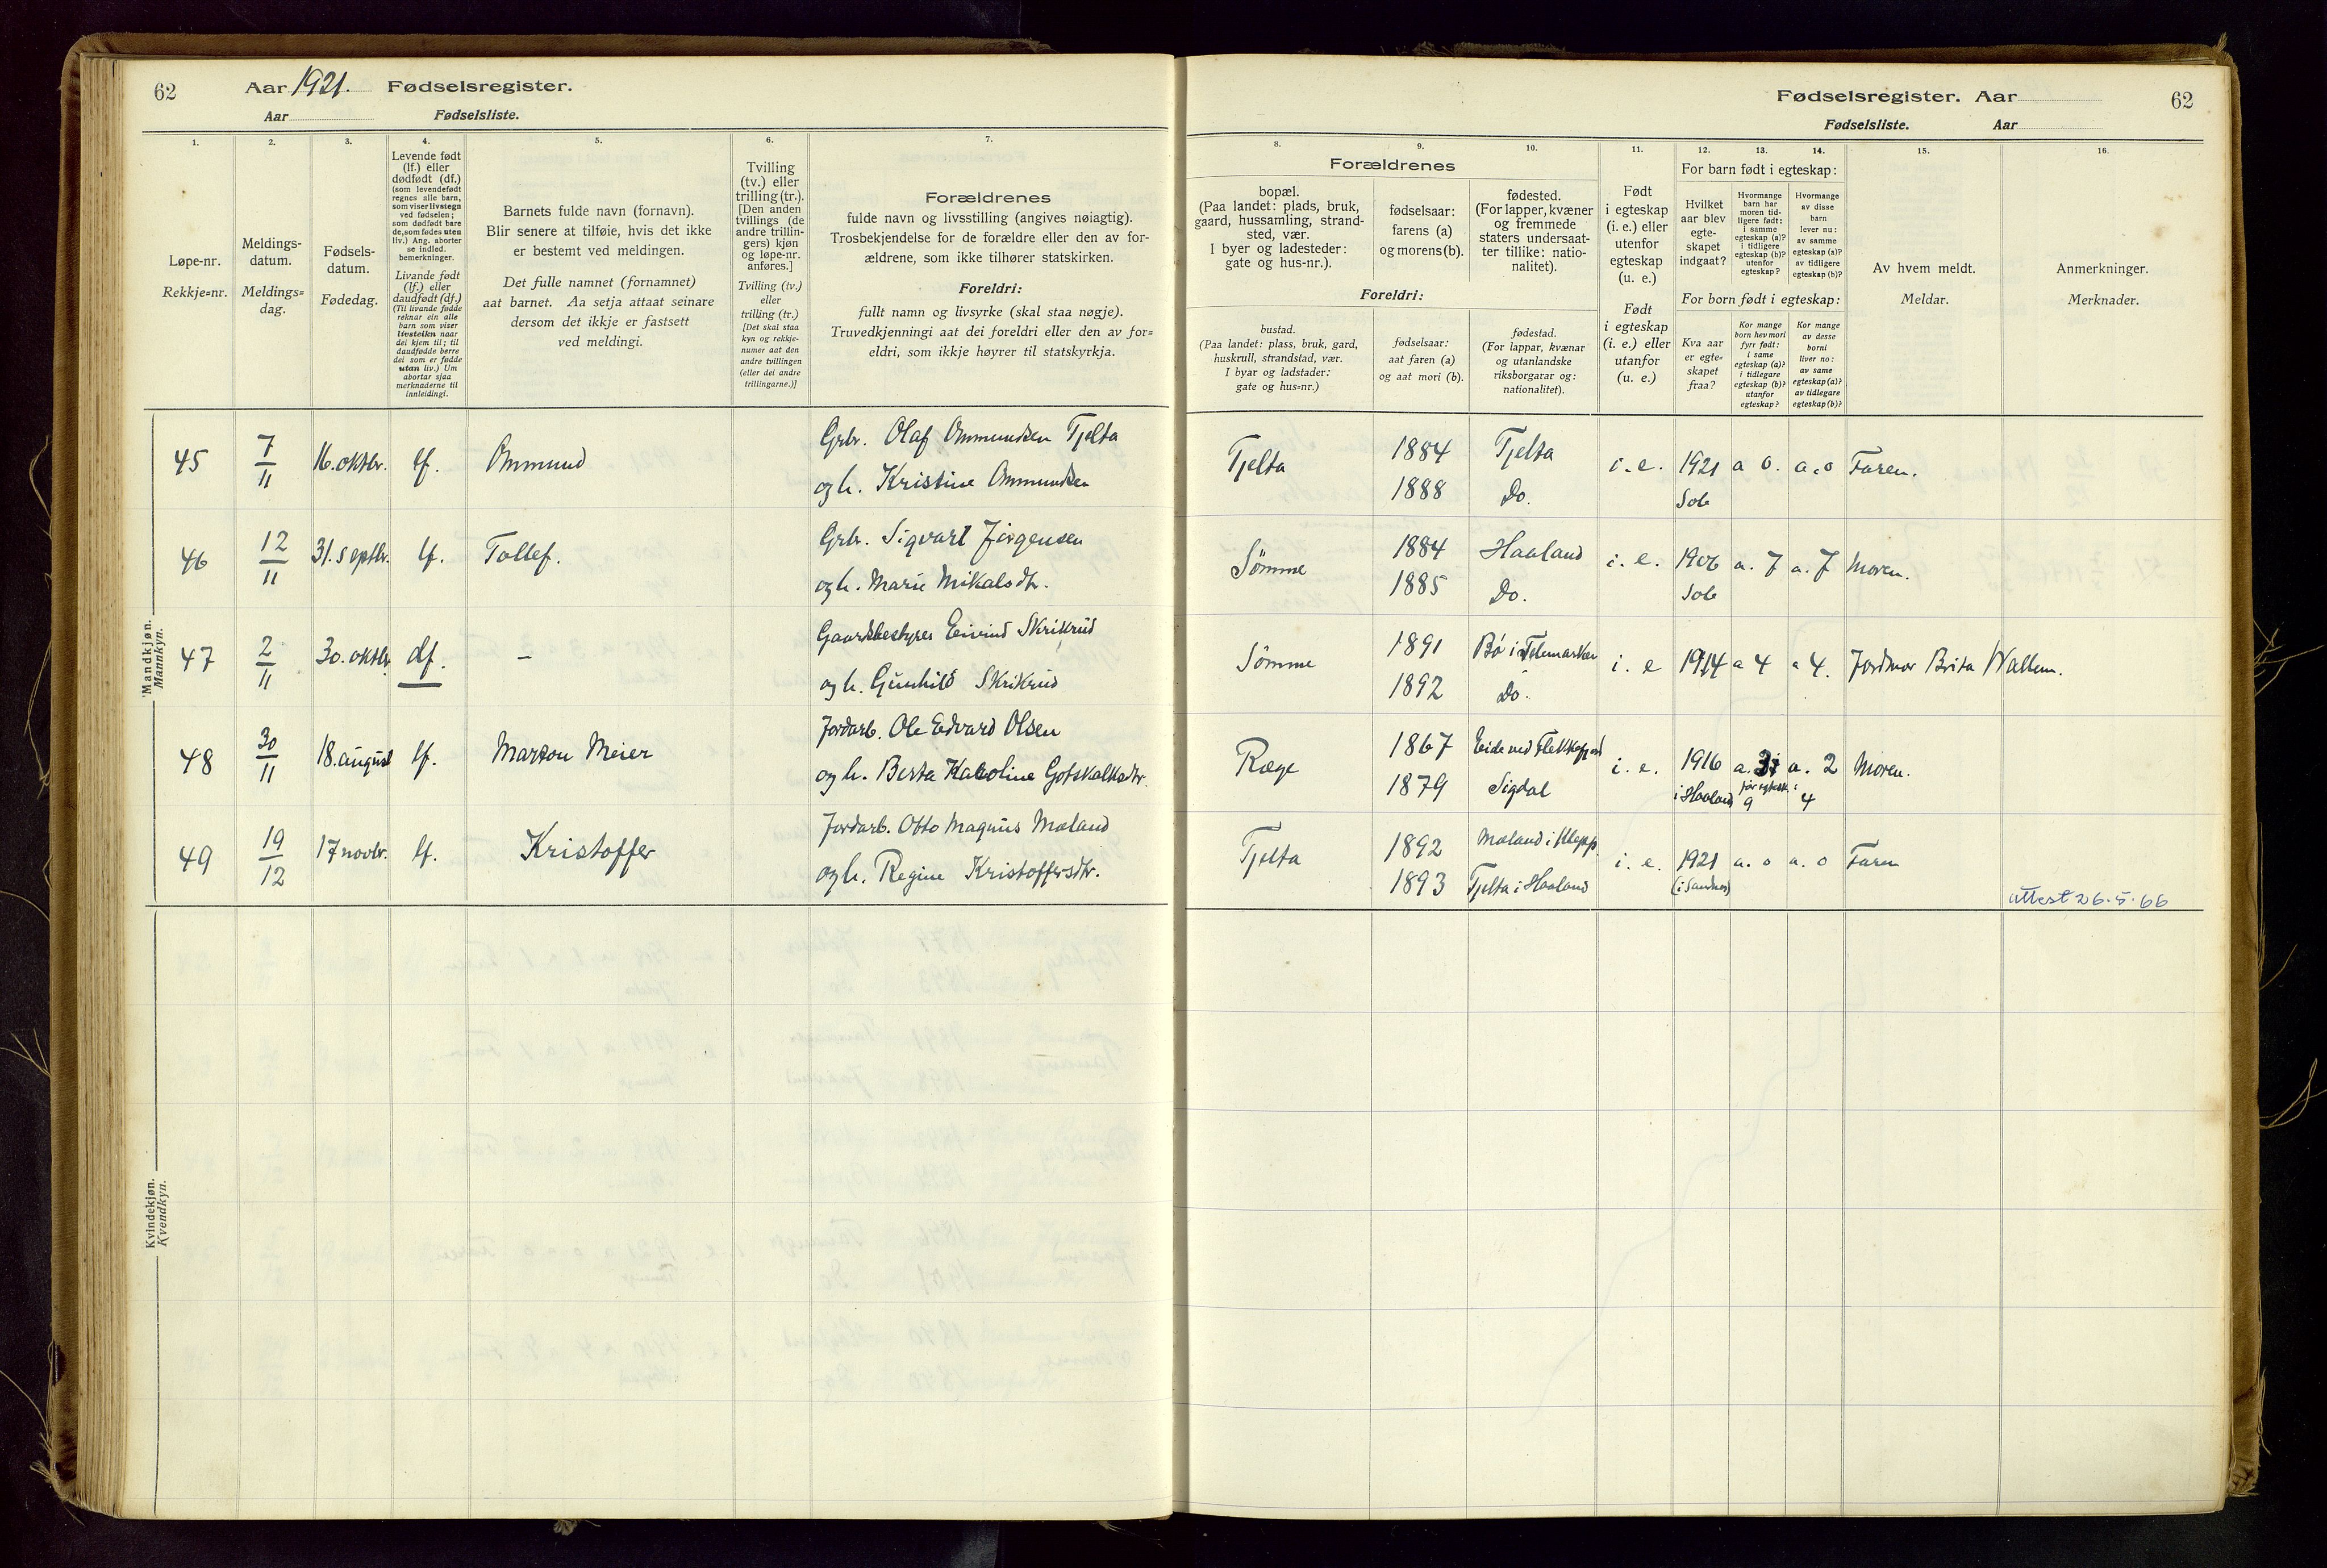 62 Aar 1921. Fødselsregister.
Aar Fødselsliste.
1. 2. 3. 4. 5. 6. 7.
Løpe-nr.
Rekkje=nr.
Meldings-
datum.
Meldings=
dag.
Fødsels-
datum.
Fødedag.
Levende født
(lf.) eller
dødfødt (df.)
(som levendefødt
regnes alle barn,
som viser livstegn
ved fødselen;
som dødfødt bare
de, som fødes uten
liv.) Ang. aborter
se indled.
bemerkninger.
Livande født
(lf.) eller
daudfødt (df.)
(Til livande fødde
reknar ein alle
barn som viser
livsteikn naar
dei kjem til; til
daudfødde berre
dei som er fødde
utan liv.) Um
abortar sjaa
merknaderne til
innleidingi.
Barnets fulde navn (fornavn).
Blir senere at tilføie, hvis det ikke
er bestemt ved meldingen.
Det fulle namnet (fornamnet)
aat barnet. Aa setja attaat seinare
dersom det ikkje er fastsett
ved meldingi.
Tvilling
(tv.) eller
trilling (tr.).
[Den anden
tvillings (de
andre trillin-
gers) kjøn
og løpe-nr.
anføres.]
Tvilling (tv.)
eller
trilling (tr.)
[Det skal staa
kyn og rekkje-
numer aat den
andre tvillingen
(eller dei andre
trillingarne.)]
Forældrenes
fulde navn og livsstilling (angives nøiagtig).
Trosbekjendelse for de forældre eller den av for-
ældrene, som ikke tilhører statskirken.
Foreldri:
fullt namn og livsyrke (skal staa nøgje).
Truvedkjenningi aat dei foreldri eller den av for=
eldri, som ikkje høyrer til statskyrkja.
Mandkjøn.
Mannkyn.
45 7/11 16. oktbr. lf. Ommund Grbr. Olaf Ommundsen Tjelta
og h. Kristine Ommundsen
46 12/11 31. septbr. lf. Tollef. Grbr. Sigvart Jörgensen
og h. Marie Mikalsdtr.
47 2/11 30. oktbr. df. – Gaardsbestyrer Eivind Skrikrud
og h. Gunhild Skrikrud
48 30/11 18. august lf. Marzon Meier Jordarb. Ole Edvard Olsen
og h. Berta Karoline Gotskalksdtr.
49 19/12 17 novbr. lf. Kristoffer Jordarb. Otto Magnus Mæland
og h. Regine Kristoffersdtr.
Kvindekjøn.
Kvendkyn.
Fødselsregister. Aar 62
Fødselsliste. Aar
8. 9. 10. 11. 12. 13. 14. 15. 16.
Forældrenes
bopæl.
(Paa landet: plads, bruk,
gaard, hussamling, strand-
sted, vær.
I byer og ladesteder:
gate og hus-nr.).
fødselsaar:
farens (a)
og morens (b).
fødested.
(For lapper, kvæner
og fremmede
staters undersaat-
ter tillike: natio-
nalitet).
Foreldri:
bustad.
(Paa landet: plass, bruk, gard,
huskrull, strandstad, vær.
I byar og ladstader:
gate og hus-nr.)
fødselsaar:
aat faren (a)
og aat mori (b).
fødestad.
(For lappar, kvænar
og utanlandske
riksborgarar og:
nationalitet).
Født
i egteskap
(i. e.) eller
utenfor
egteskap
(u. e.)
Født
i egteskap
(i. e.) eller
utanfor
(u. e.)
For barn født i egteskap:
Hvilket
aar blev
egte-
skapet
indgaat?
Hvormange
barn har
moren tid-
ligere født:
i samme
egteskap (a)?
i tidligere
egteskap (b)?
utenfor
egteskap?
Hvormange
av disse
barn
lever nu:
av samme
egteskap (a)?
av tidligere
egteskap (b)?
For born født i egteskap:
Kva aar
er egte=
skapet
fraa?
Kor mange
born hev mori
fyrr født:
i same
egteskap (a)?
i tidlegare
egteskap (b)?
utanfor
egteskap?
Kor mange
av desse
borni
liver no:
av same
egteskap (a)?
av tidlegare
egteskap (b)?
Av hvem meldt.
Meldar.
Anmerkninger.
Merknader.
Tjelta 1884 Tjelta i. e. 1921 a 0. a. 0 Faren.
1888 Do. Sole
Sömme 1884 Haaland i. e. 1906 a. 7 a. 7 Moren.
1885 Do. Sole
Sömme 1891 Bö i Telemarken i. e 1914 a 4 a 4. Jordmor Brita Wallem.
1892 Do.
Ræge 1867 Eide ved Flekkefjord i. e. 1916 a. 3 a. 2 Moren.
1879 Sigdal i Haaland før egtesk: 9 4
Tjelta 1892 Mæland i Klepp. i. e. 1921 a. 0 a. 0 Faren
1893 Tjelta i Haaland (i Sandnes)
attest 26.5.66